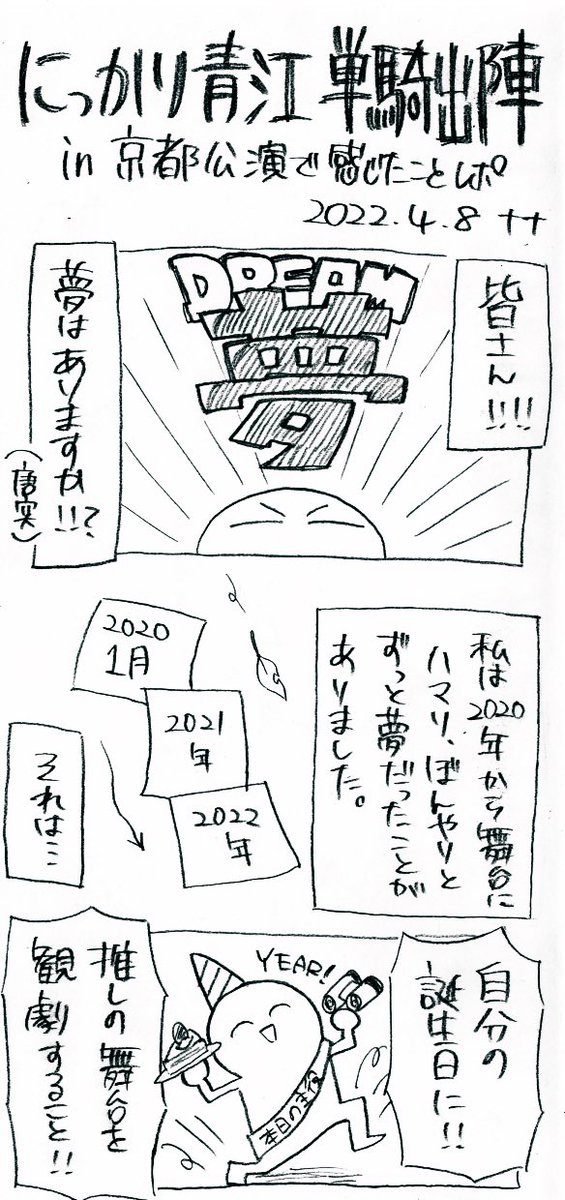 にっかり青江 単騎出陣
in 京都公演で感じたことレポ
2022.4.8 ナナ
皆さん!!!!
DREAM
夢
夢はありますか!!?
(唐突)
私は2020年から舞台に
ハマリ、ぼんやりと
ずっと夢だったことが
ありました。
2020
1月
2021
年
2022
年
それは…
自分の
誕生日に!!
YEAR!
本日の主役
推しの舞台を
観劇すること!!